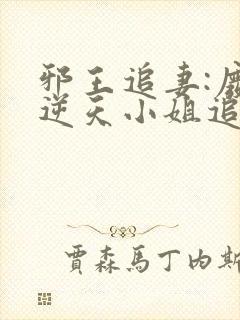 邪王追妻:
逆天小姐追
賈森馬丁內斯